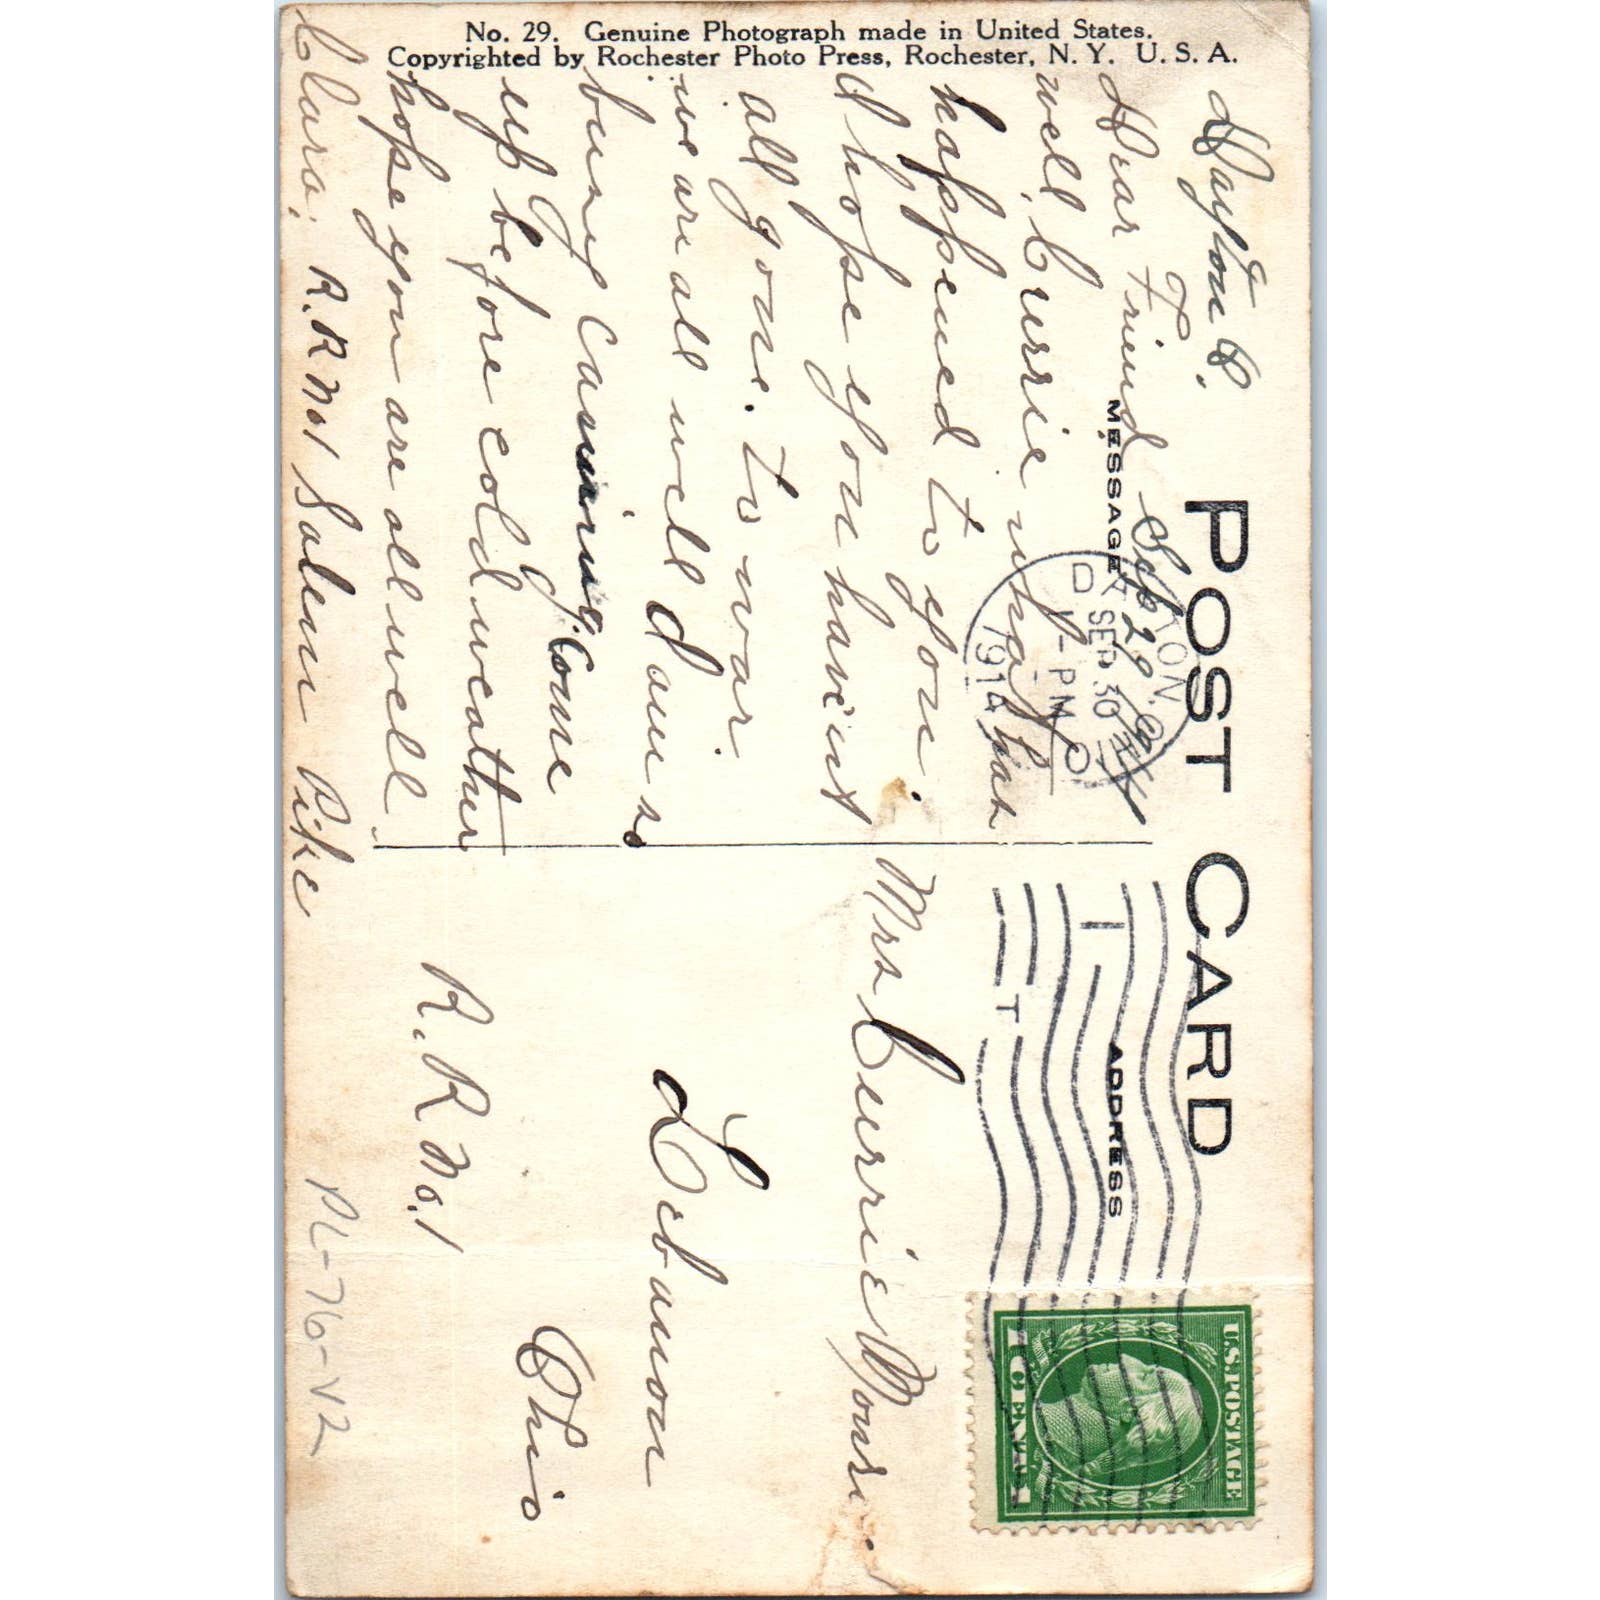 No. 29. Genuine Photograph made in United States.
Copyrighted by Rochester Photo Press, Rochester, N. Y. U. S. A.
POST CARD
MESSAGE
ADDRESS
Dayton O.
Sep 29
Dear Friend
well Currie what
happened to you.
I hope you have'nt
all gone. to war.
we are all well &
busy Canning. Come
up before cold weather
hope you are all well.
Clara. R.R No 1 Salem Pike
DAYTON, O
SEP 30
1-PM
1914
U.S. POSTAGE
1 CENT 1
Mrs Currie
Lebanon
Ohio
R. R No. 1
PL-76-V2